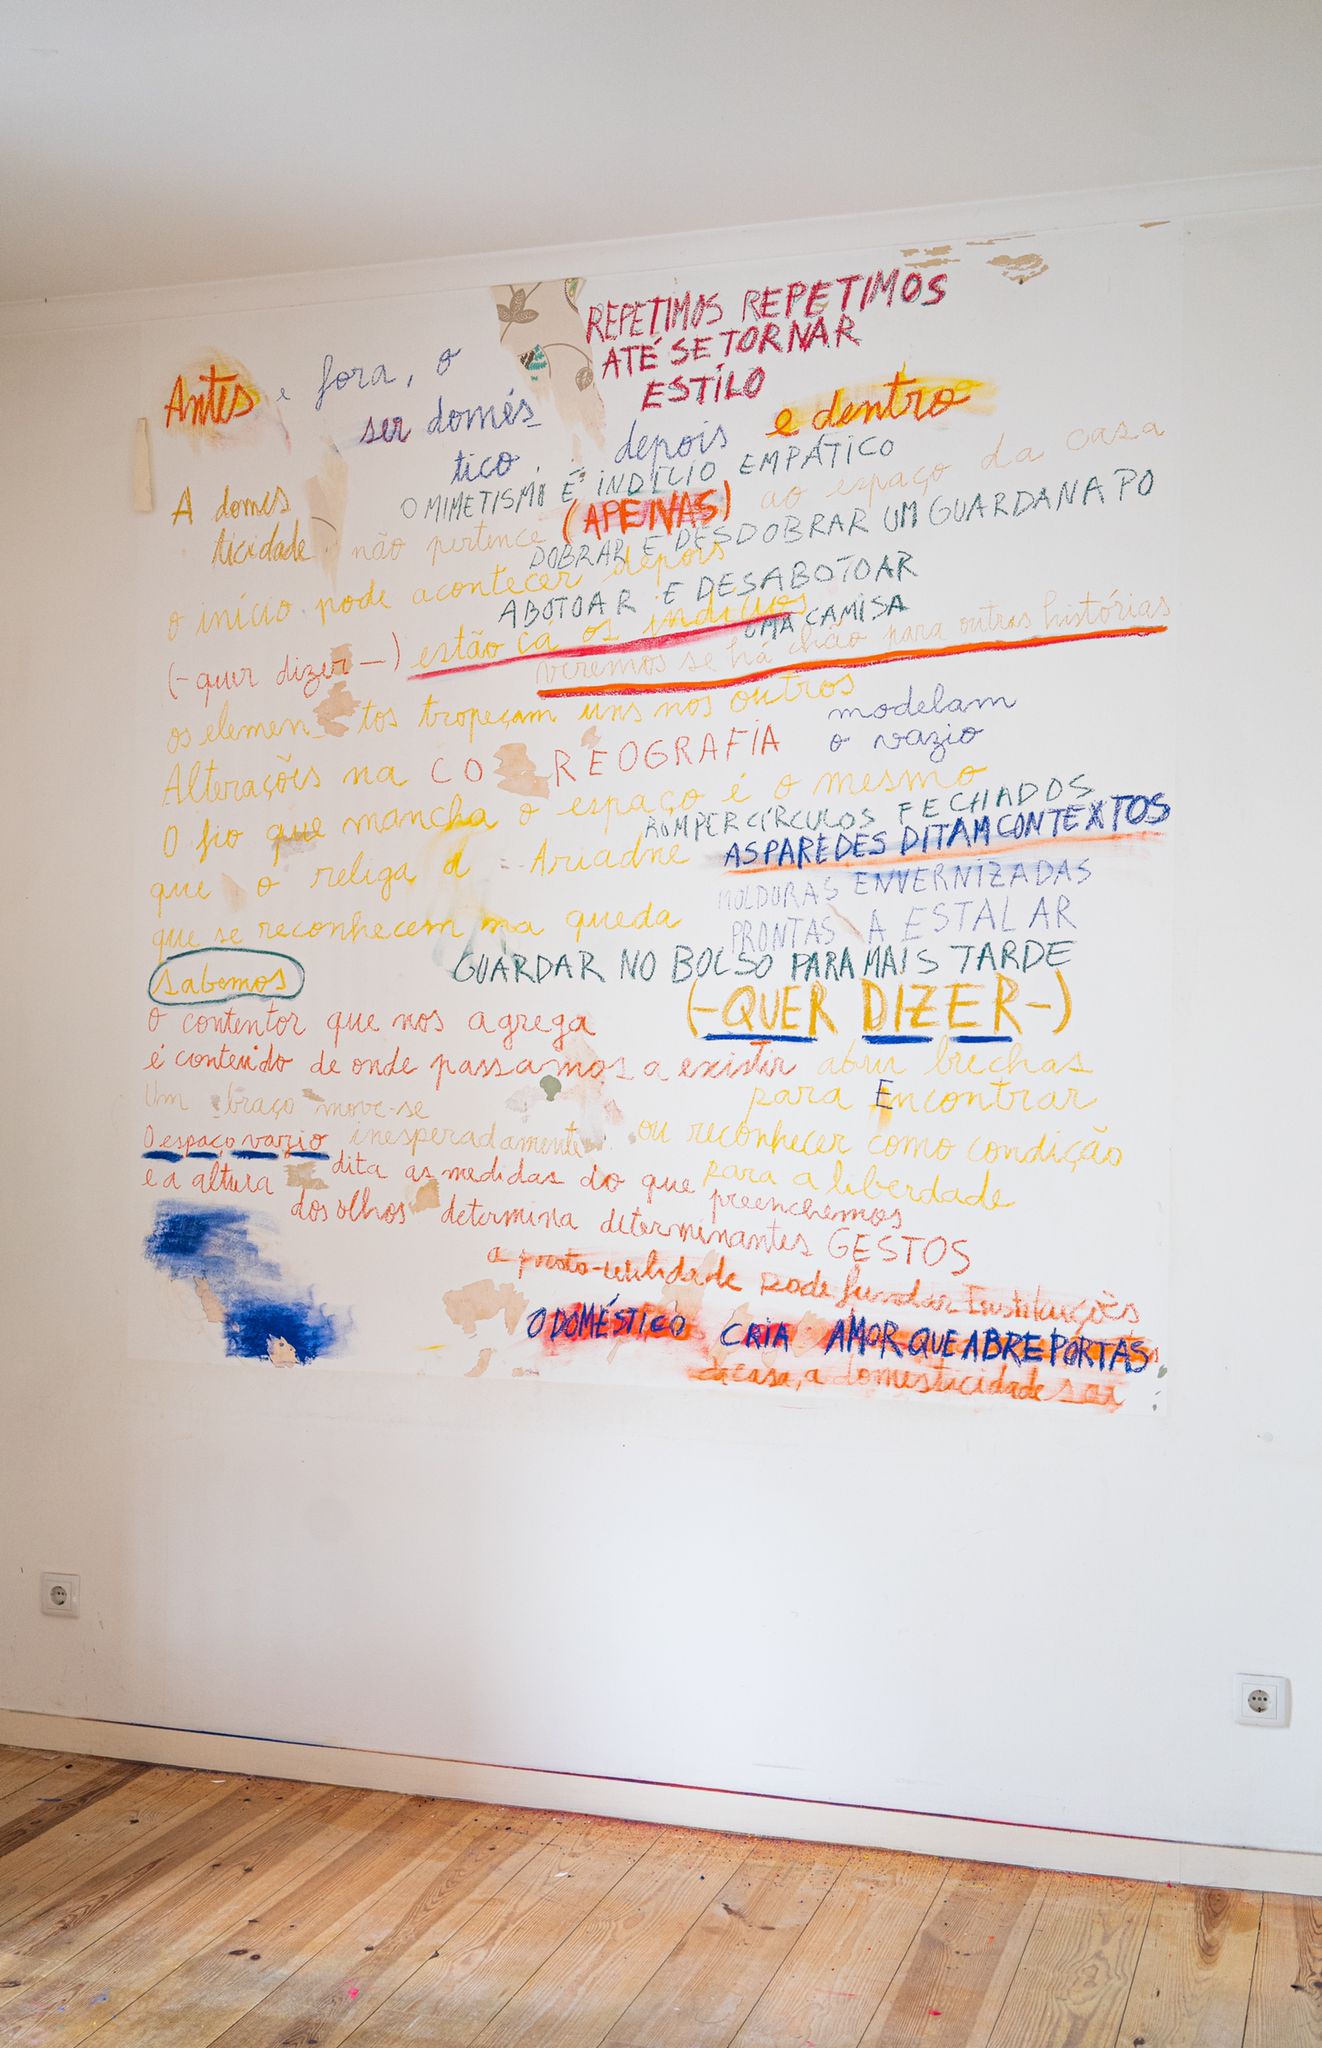 REPETIMOS REPETIMOS
ATÉ SE TORNAR
ESTILO
Antes e fora, o
ser domés
tico. depois e dentro
O MIMETISMO É INDÍCIO EMPÁTICO
A domes
ticidade não pertence (APENAS) ao espaço da casa
DOBRAR E DESDOBRAR UM GUARDANAPO
o início pode acontecer depois
ABOTOAR E DESABOTOAR
UMA CAMISA
(-quer dizer-) estão cá os indícios
veremos se há chão para outras histórias
os elemen tos tropeçam uns nos outros
modelam
o vazio
Alterações na CO REOGRAFIA
O fio que mancha o espaço é o mesmo
ROMPER CÍRCULOS FECHADOS
que o religa a Ariadne
AS PAREDES DITAM CONTEXTOS
MOLDURAS ENVERNIZADAS
PRONTAS A ESTALAR
que se reconhecem na queda
GUARDAR NO BOLSO PARA MAIS TARDE
sabemos
(-QUER DIZER-)
o contentor que nos agrega
é contenido de onde passamos a existir
abrir brechas
para Encontrar
ou reconhecer como condição
para a liberdade
Um braço move-se
inesperadamente
O espaço vazio
dita as medidas do que preenchemos
e a altura
dos olhos determina determinantes GESTOS
a proto-utilidade pode fundar Instituições
O DOMÉSTICO CRIA AMOR QUE ABRE PORTAS
da casa, a domesticidade sai